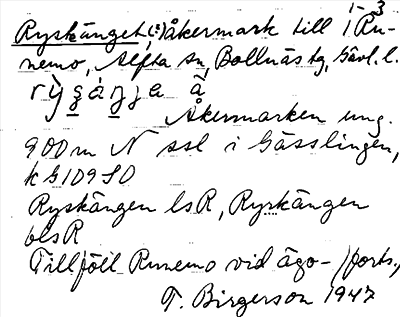 Ryskänget, (:)åkermark till 1-3 Ru-
nemo, Alfta sn, Bollnäs tg, Gävl. l.
Åkermarken ung.
900 m N ssl i Gässlingen,
k G109 SO
Ryskängen lsR, Ryrkängen
blsR
Tillföll Runemo vid ägo- /forts.,
T. Birgerson 1947